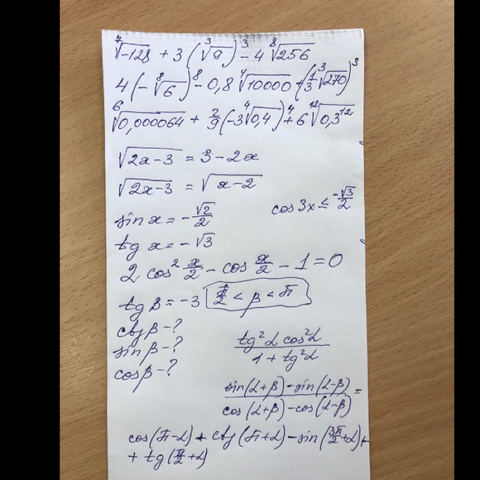 ⁷√-128 + 3(³√9)³ - 4 ⁸√256
4(-⁸√6)⁸ - 0,8 ⁴√10000 + (1/3 ³√270)³
⁶√0,000064 + 2/9(-3 ⁴√0,4)⁴ + 6 ¹²√0,3¹²
√2x-3 = 3-2x
√2x-3 = √x-2
sin x = -√2/2
cos 3x ≤ -√3/2
tg x = -√3
2 cos² x/2 - cos x/2 - 1 = 0
tg β = -3 π/2 < β < π
ctg β - ?
sin β - ?
cos β - ?
tg²α cos²α / 1 + tg²α
sin(α+β) - sin(α-β) / cos(α+β) - cos(α-β) =
cos(π-α) + ctg(π+α) - sin(3π/2+α) +
+ tg(π/2+α)